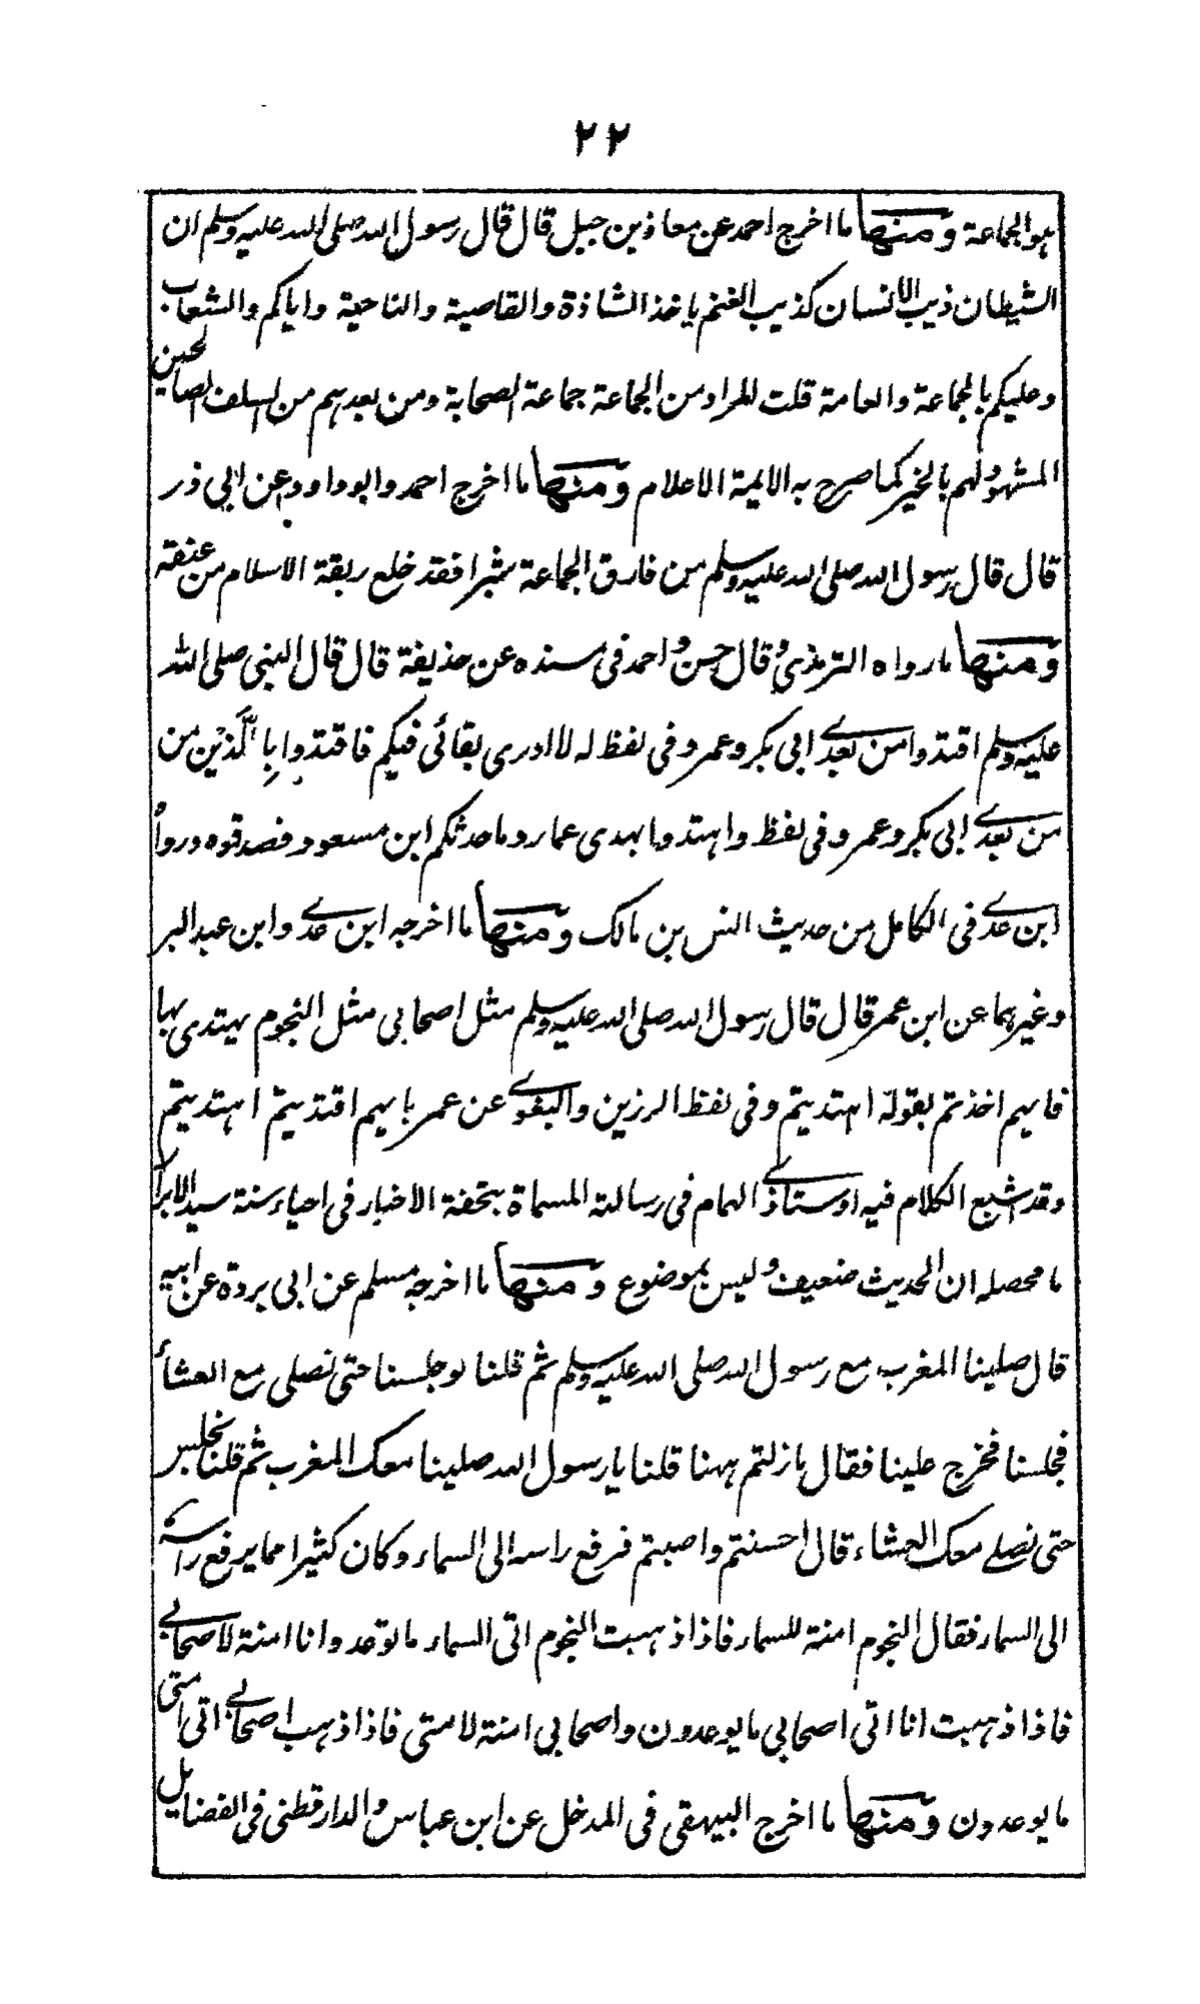 ٢٢
هو الجماعة ومنها ما اخرج احمد عن معاذ بن جبل قال قال رسول الله صلى الله عليه وسلم ان
الشيطان ذيب الانسان كذيب الغنم ياخذ الشاذة والقاصية والناحية واياكم والشعاب
وعليكم بالجماعة والعامة قلت المراد من الجماعة جماعة الصحابة ومن بعدهم من السلف الصالحين
المشهود لهم بالخير كما صرح به الايمة الاعلام ومنها ما اخرج احمد وابو داود عن ابي ذر
قال قال رسول الله صلى الله عليه وسلم من فارق الجماعة شبرا فقد خلع ربقة الاسلام من عنقه
ومنها ما رواه الترمذي وقال حسن واحمد في مسنده عن حذيفة قال قال النبي صلى الله
عليه وسلم اقتدوا من بعدي ابي بكر وعمر وفي لفظ له لا ادري بقائي فيكم فاقتدوا بالَّذَيْن من
من بعدي ابي بكر وعمر وفي لفظ واهتدوا بهدى عمار وما حدثكم ابن مسعود فصدقوه ورواه
ابن عدي في الكامل من حديث انس بن مالك ومنها ما اخرجه ابن عدي وابن عبد البر
وغيرهما عن ابن عمر قال قال رسول الله صلى الله عليه وسلم مثل اصحابي مثل النجوم يهتدى بها
فايهم اخذتم بقوله اهتديتم وفي لفظ الرزين والبغوي عن عمر بايهم اقتديتم اهتديتم
وقد اشبع الكلام فيه اوستاذي الهمام في رسالته المسماة بتحفة الاخيار في احياء سنة سيد الابرار
ما محصله ان الحديث ضعيف وليس بموضوع ومنها ما اخرجه مسلم عن ابي بردة عن ابيه
قال صلينا المغرب مع رسول الله صلى الله عليه وسلم ثم قلنا لو جلسنا حتى نصلي مع العشاء
فجلسنا فخرج علينا فقال ما زلتم ههنا قلنا يا رسول الله صلينا معك المغرب ثم قلنا نجلس
حتى نصلي معك العشاء قال احسنتم واصبتم فرفع راسه الى السماء وكان كثيرا مما يرفع راسه
الى السماء فقال النجوم امنة للسماء فاذا ذهبت النجوم اتى السماء ما توعد وانا امنة لاصحابي
فاذا ذهبت انا اتى اصحابي ما يوعدون واصحابي امنة لامتي فاذا ذهب اصحابي اتى امتي
ما يوعدون ومنها ما اخرج البيهقي في المدخل عن ابن عباس والدارقطني في الفضايل